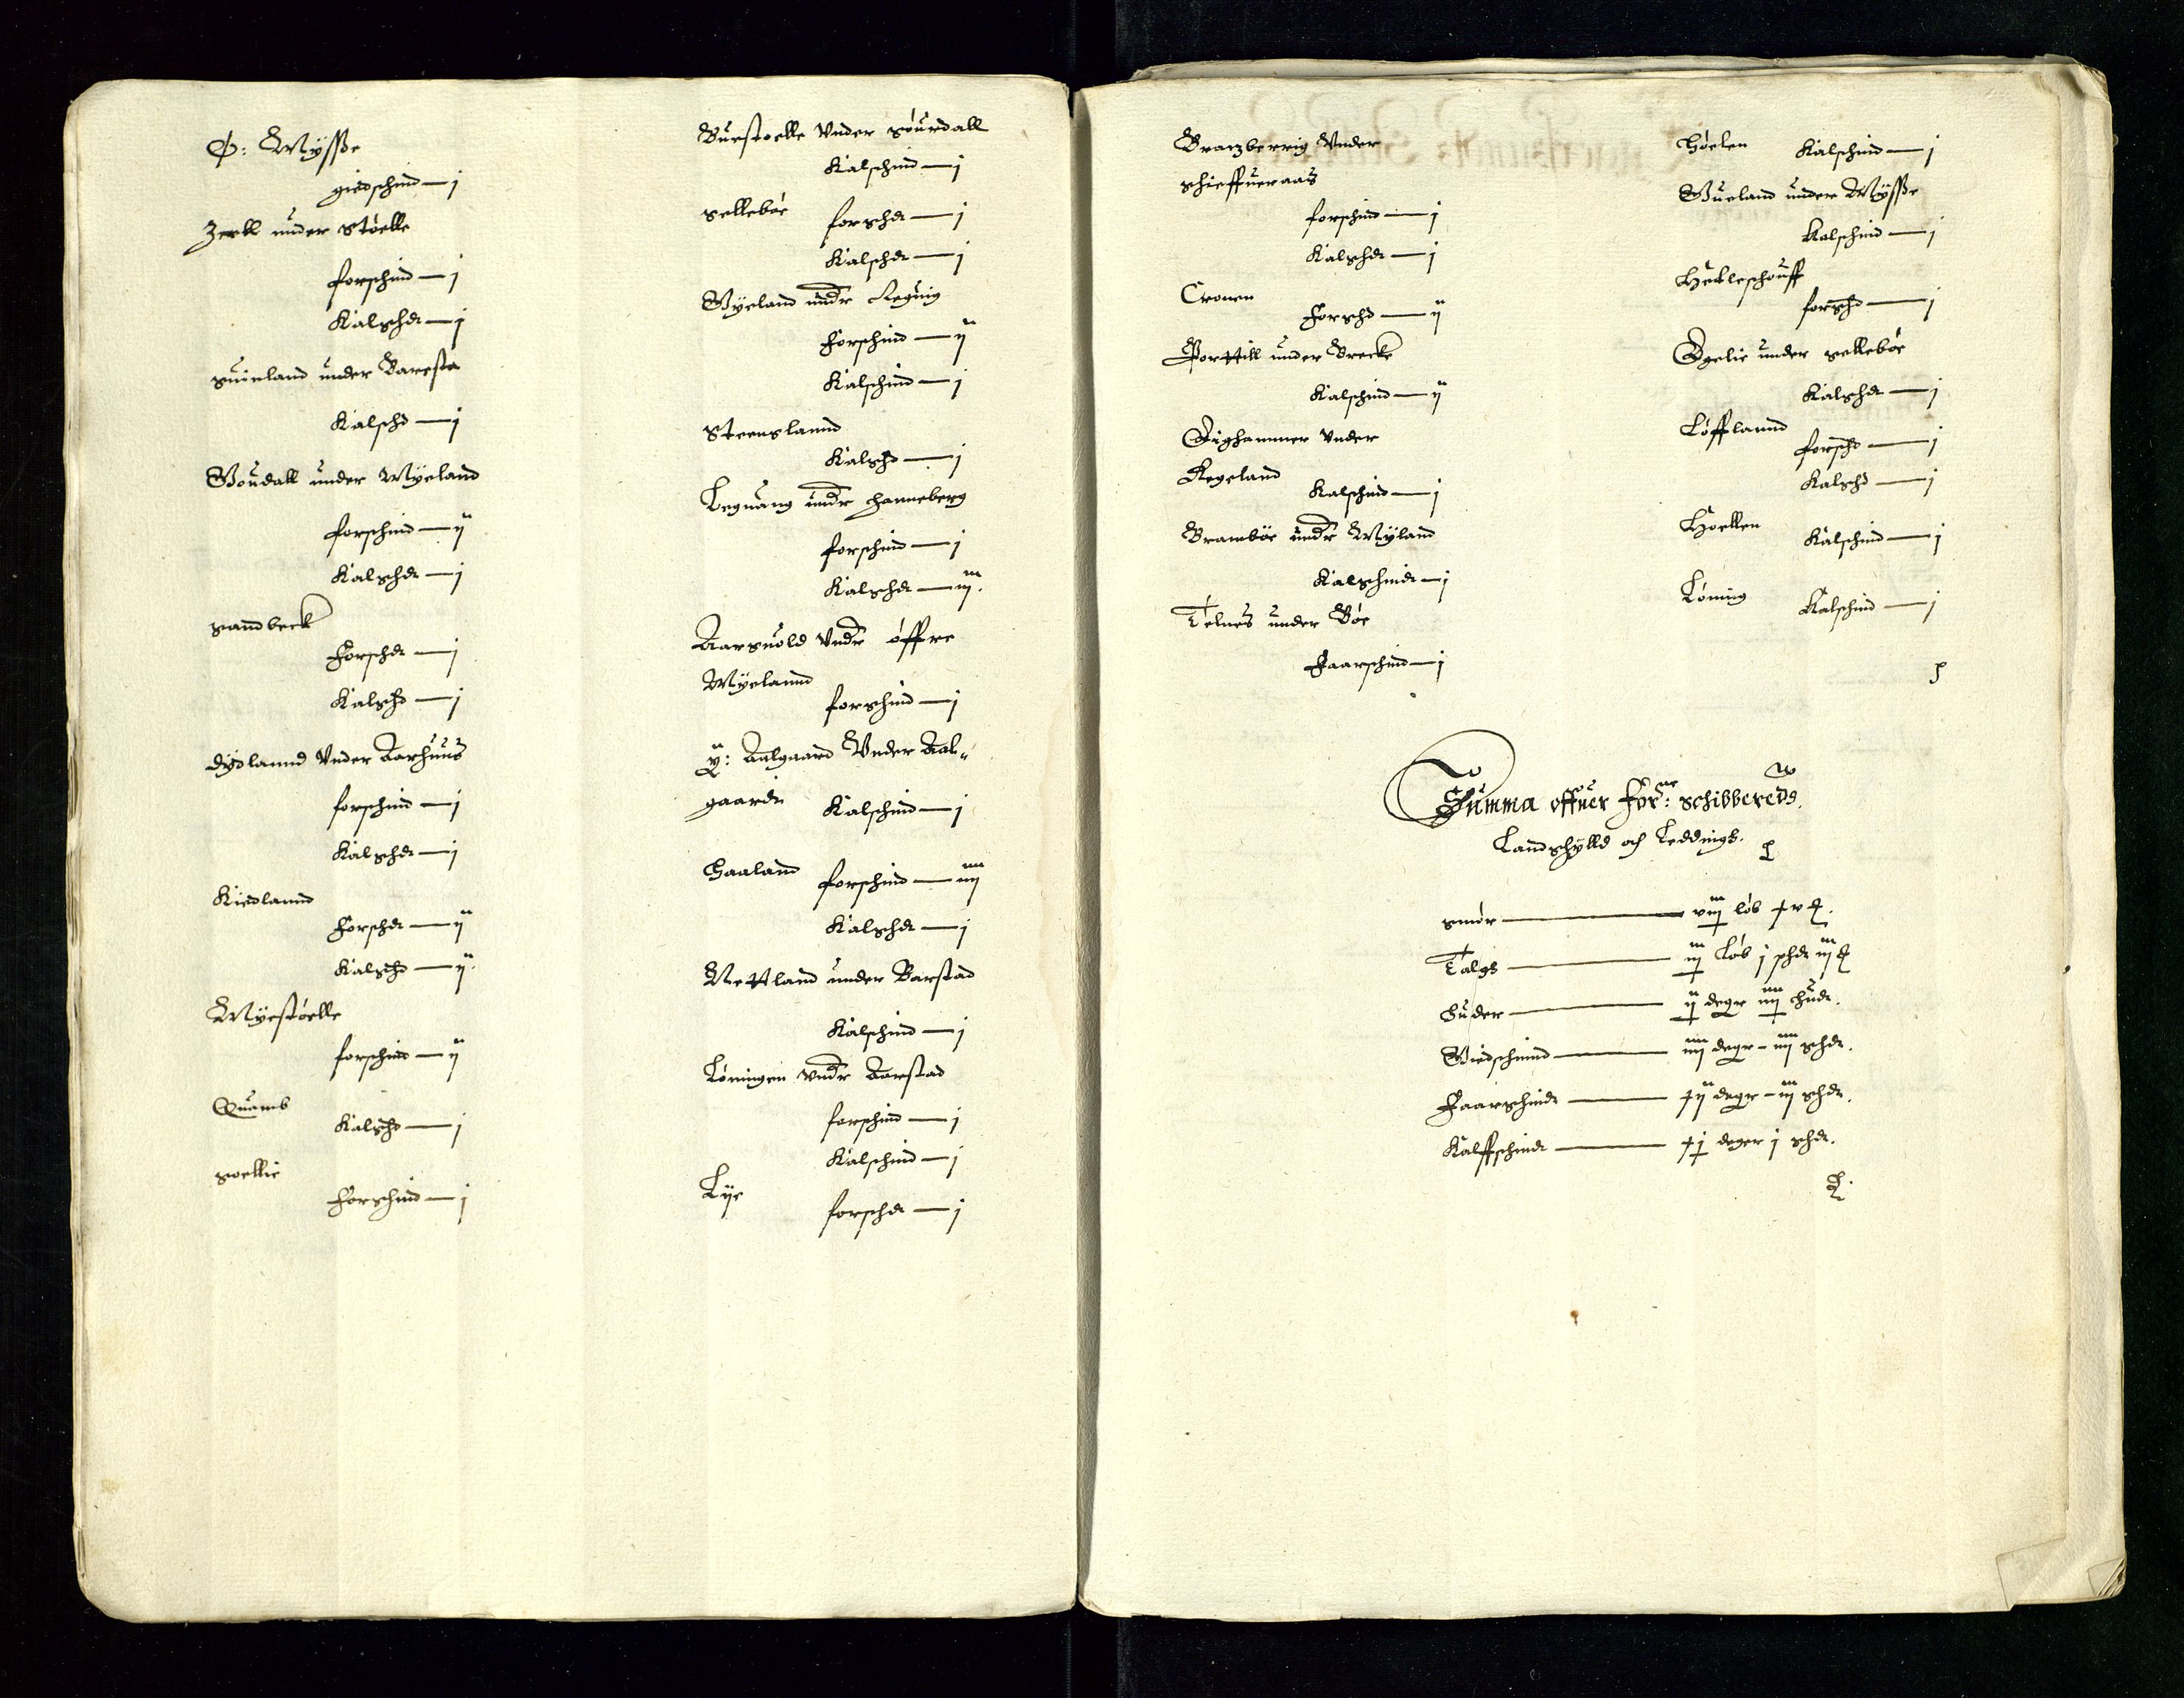 Ø: Mÿsße
giedschind — j
Zerll under Støelle
forschind — j
Kalschd — j
Suinland under Baresta
Kalschd — j
Goudall under Mÿeland
forschind — ij
Kalschd — j
Sandbeck
Forschd — j
Kalschd — j
Dÿdlannd Vnder Aarhuus
forschind — j
Kalschd — j
Kiedlannd
Forschd — ij
Kalschd — ij.
Mÿestøelle
forschind — ij
Quamb
Kalschd — j
Soellie
Forschind — j
Buestoelle Vnder Sourdall
Kalschind — j
Sellebøe
forschd — j
Kalschd — j
Mÿeland undr Regnig
Forschind — ij
Kalschind — j
Steenslannd
Kalschd — j
Legnang undr Hanneberg
forschind — j
Kalschd — iij.
Aarsuold Vndr øffre
Mÿelannd
forschind — j
ÿ: Aalgaard Vnder Aal-
gaard
Kalschind — j
Haaland
forschind — iiij
Kalschd — j
Nettland under Barstad
Kalschind — j
Løningen Vndr Aarstad
forschind — j
Kalschind — j
Lÿe
forschd — j
Branzberrig Vnder
Schieffueraas
forschind — j
Kalschd — j
Cronen
Forschd — ij
Porttill under Brecke
Kalschind — ij
Eighammer Vnder
Regeland
Kalschind — j
Brambøe undr Mÿland
Kalschind — j
Telnes under Bøe
Faarschind — j
Høelen
Kalschind — j
Bueland under Mÿsße
Kalschind — j
Heckleschouff
forschd — j
Egelie under Sellebøe
Kalschd — j
Løfflannd
forschd — j
Kalschd — j
Hoellen
Kalschind — j
Løning
Kalschind — j
Summa offuer Forne: Schibbereds.
Landschÿlld och Leddings.
Smør — viij løb
Talgs — iij Løb j
Huder — ij degr iiij hudr.
Giedschinnd — iiij degr - iiij schdr.
Faarschindr — xij degr - iij schdr.
Kalffschindr — xj deger j schd.